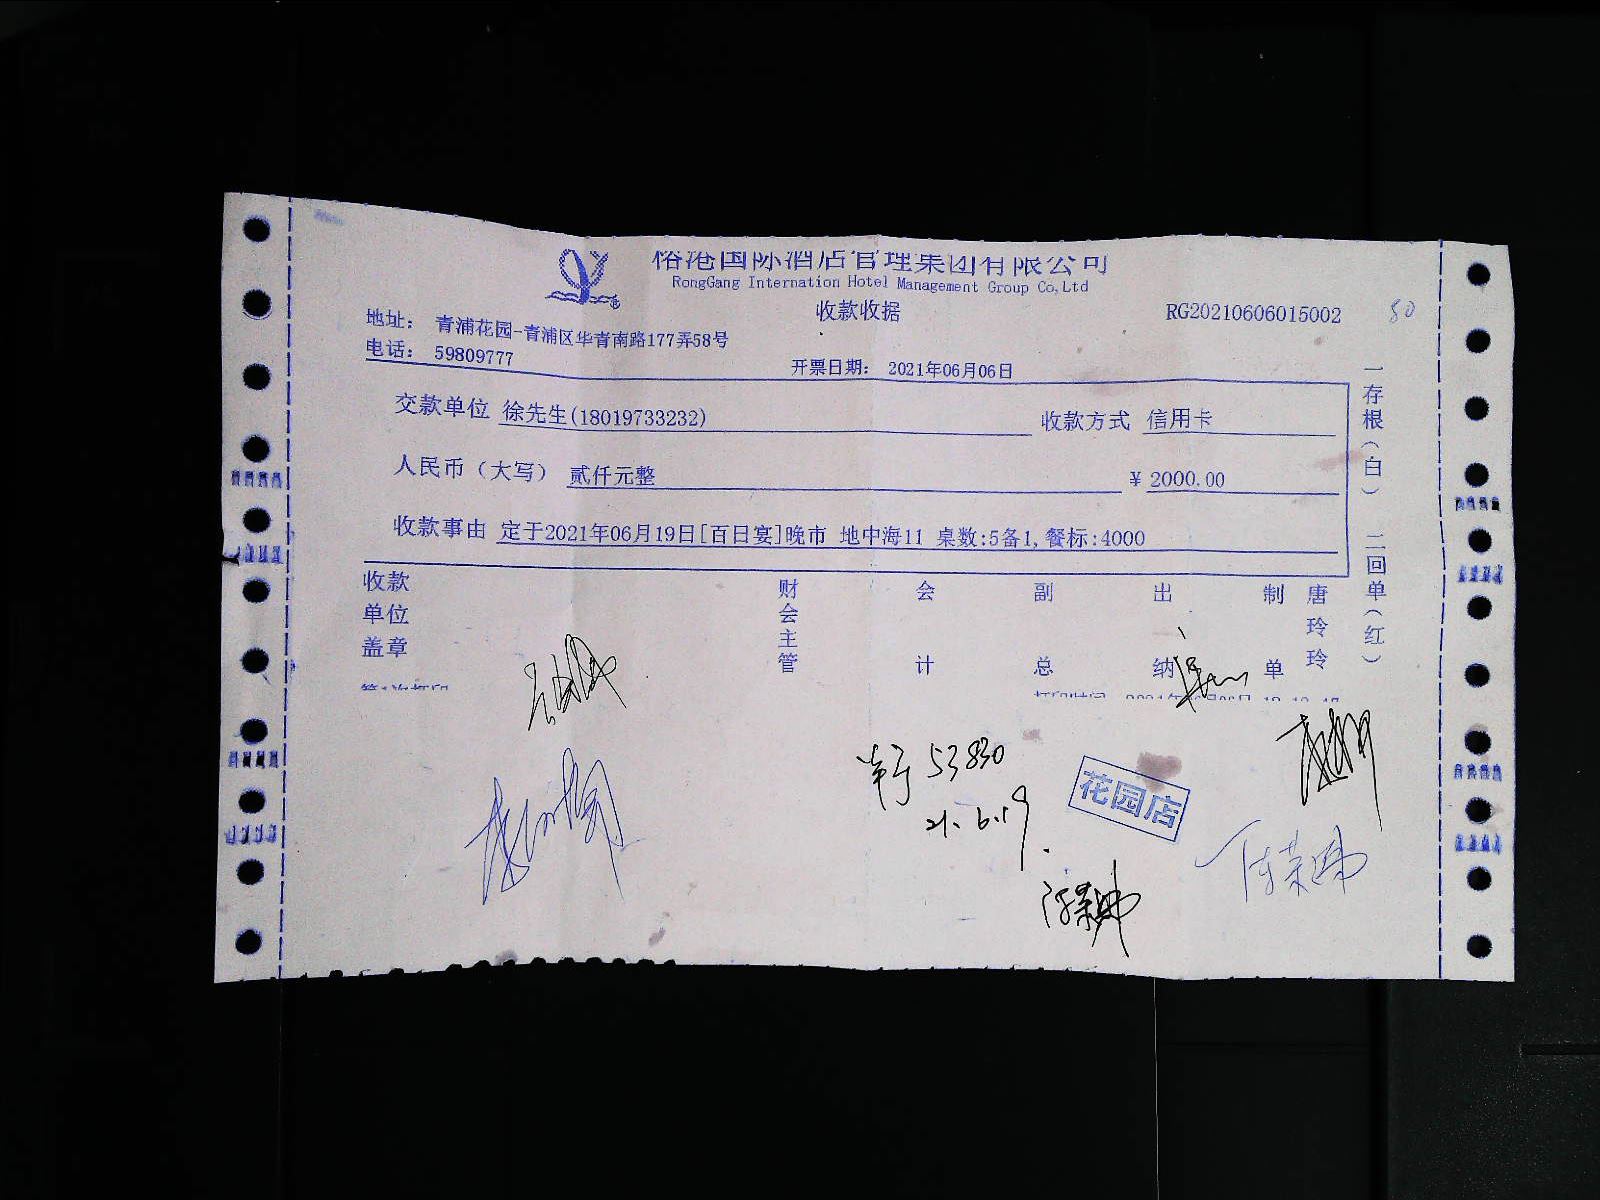 榕港国际酒店管理集团有限公司
RongGang International Hotel Management Group Co,Ltd
收款收据
RG20210606015002
50
地址： 青浦花园-青浦区华青南路177弄58号
电话： 59809777
开票日期： 2021年06月06日
交款单位 徐先生(18019733232)
收款方式 信用卡
人民币（大写） 贰仟元整
¥ 2000.00
收款事由 定于2021年06月19日[百日宴]晚市 地中海11 桌数:5备1,餐标:4000
一存根（白） 二回单（红）
收款单位盖章
财会主管
会计
副总
出纳
制单
唐玲玲
第1次打印
打印时间 2021年06月06日
53830
21.6.19
花园店
陈荣娣
陈荣娣